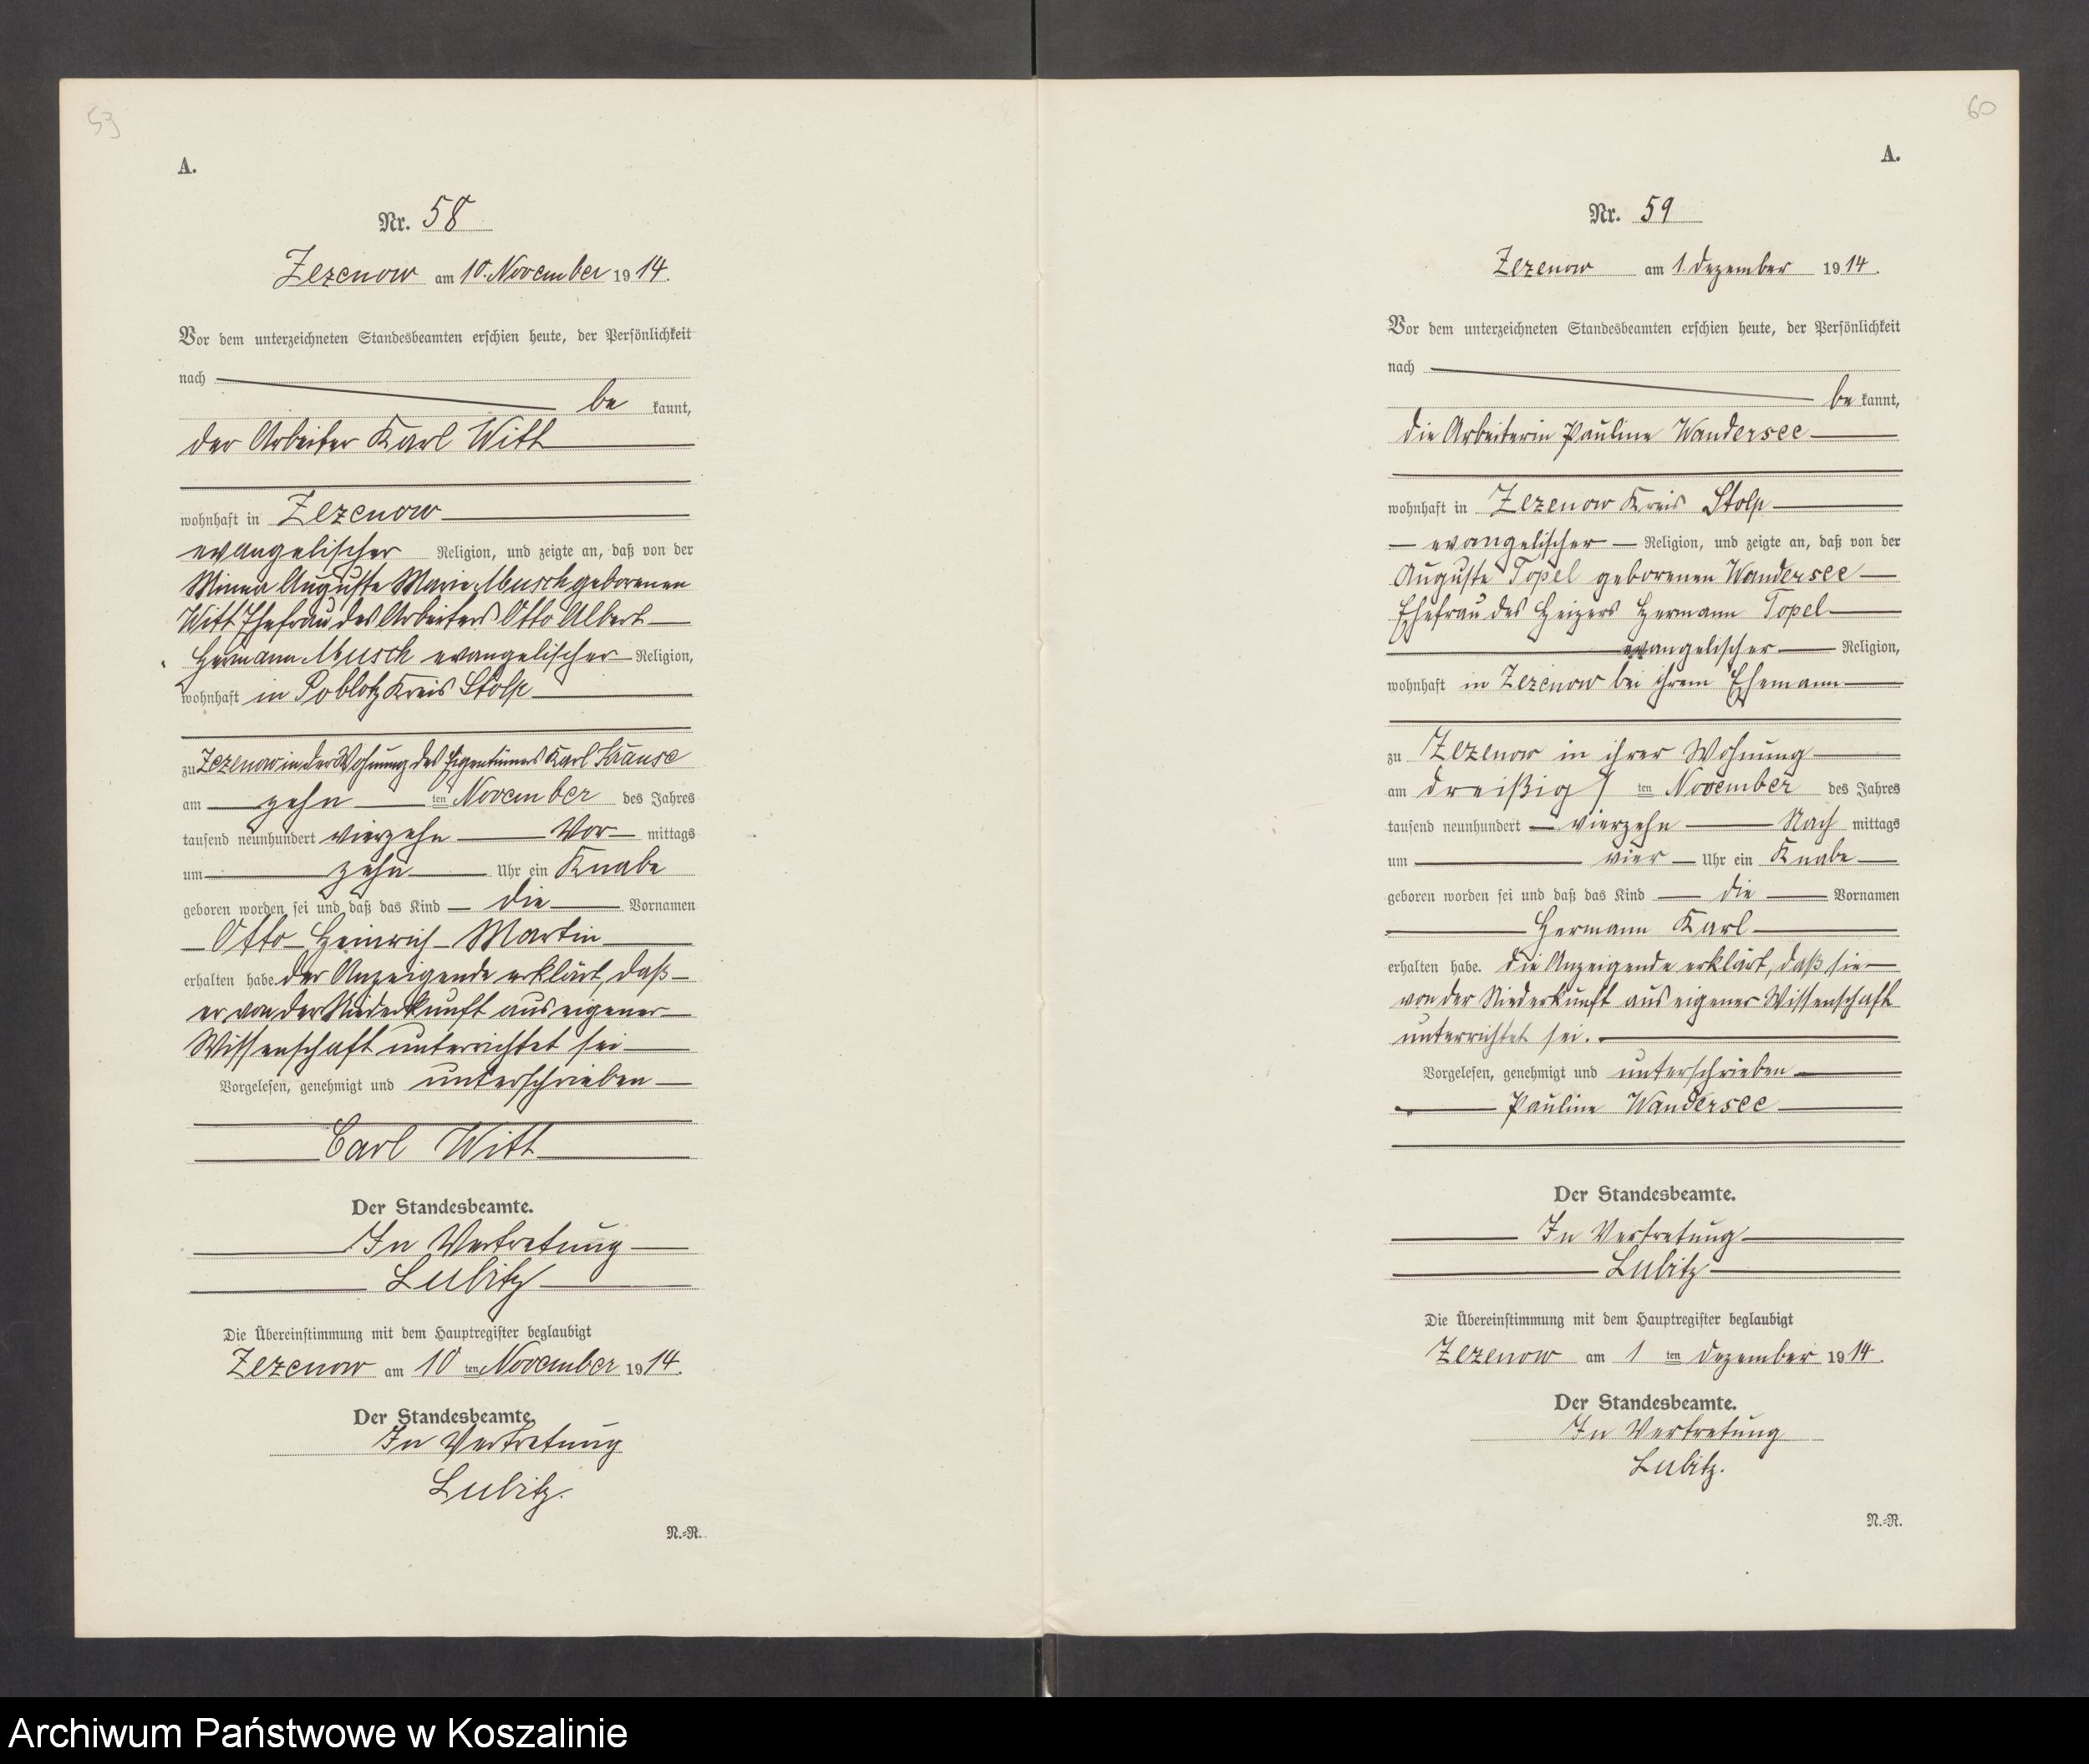 59
A.
Nr. 58
Zezenow am 10. November 1914.
Vor dem unterzeichneten Standesbeamten erschien heute, der Persönlichkeit
nach
be kannt,
der Arbeiter Karl Witt
wohnhaft in Zezenow
evangelischer Religion, und zeigte an, daß von der
Minna Auguste Marie Musch geborenen
Witt Ehefrau des Arbeiters Otto Albert
Hermann Musch evangelischer Religion,
wohnhaft in Poblotz Kreis Stolp
zu Zezenow in der Wohnung des Eigentümers Karl Krause
am zehn ten November des Jahres
tausend neunhundert vierzehn Vor mittags
um zehn Uhr ein Knabe
geboren worden sei und daß das Kind die Vornamen
Otto Heinrich Martin
erhalten habe der Anzeigende erklärt, daß
er von der Niederkunft aus eigener
Wissenschaft unterrichtet sei
Vorgelesen, genehmigt und unterschrieben
Carl Witt
Der Standesbeamte.
In Vertretung
Lubitz
Die Übereinstimmung mit dem Hauptregister beglaubigt
Zezenow am 10 ten November 1914.
Der Standesbeamte.
In Vertretung
Lubitz.
N.-R.
60
A.
Nr. 59
Zezenow am 1. Dezember 1914.
Vor dem unterzeichneten Standesbeamten erschien heute, der Persönlichkeit
nach
be kannt,
die Arbeiterin Pauline Wandersee
wohnhaft in Zezenow Kreis Stolp
evangelischer Religion, und zeigte an, daß von der
Auguste Topel geborenen Wandersee
Ehefrau des Heizers Hermann Topel
evangelischer Religion,
wohnhaft in Zezenow bei ihrem Ehemann
zu Zezenow in ihrer Wohnung
am dreißig ten November des Jahres
tausend neunhundert vierzehn Nach mittags
um vier Uhr ein Knabe
geboren worden sei und daß das Kind die Vornamen
Hermann Karl
erhalten habe. die Anzeigende erklärt, daß sie
von der Niederkunft aus eigener Wissenschaft
unterrichtet sei.
Vorgelesen, genehmigt und unterschrieben
Pauline Wandersee
Der Standesbeamte.
In Vertretung
Lubitz
Die Übereinstimmung mit dem Hauptregister beglaubigt
Zezenow am 1 ten Dezember 1914.
Der Standesbeamte.
In Vertretung
Lubitz.
N.-R.
Archiwum Państwowe w Koszalinie